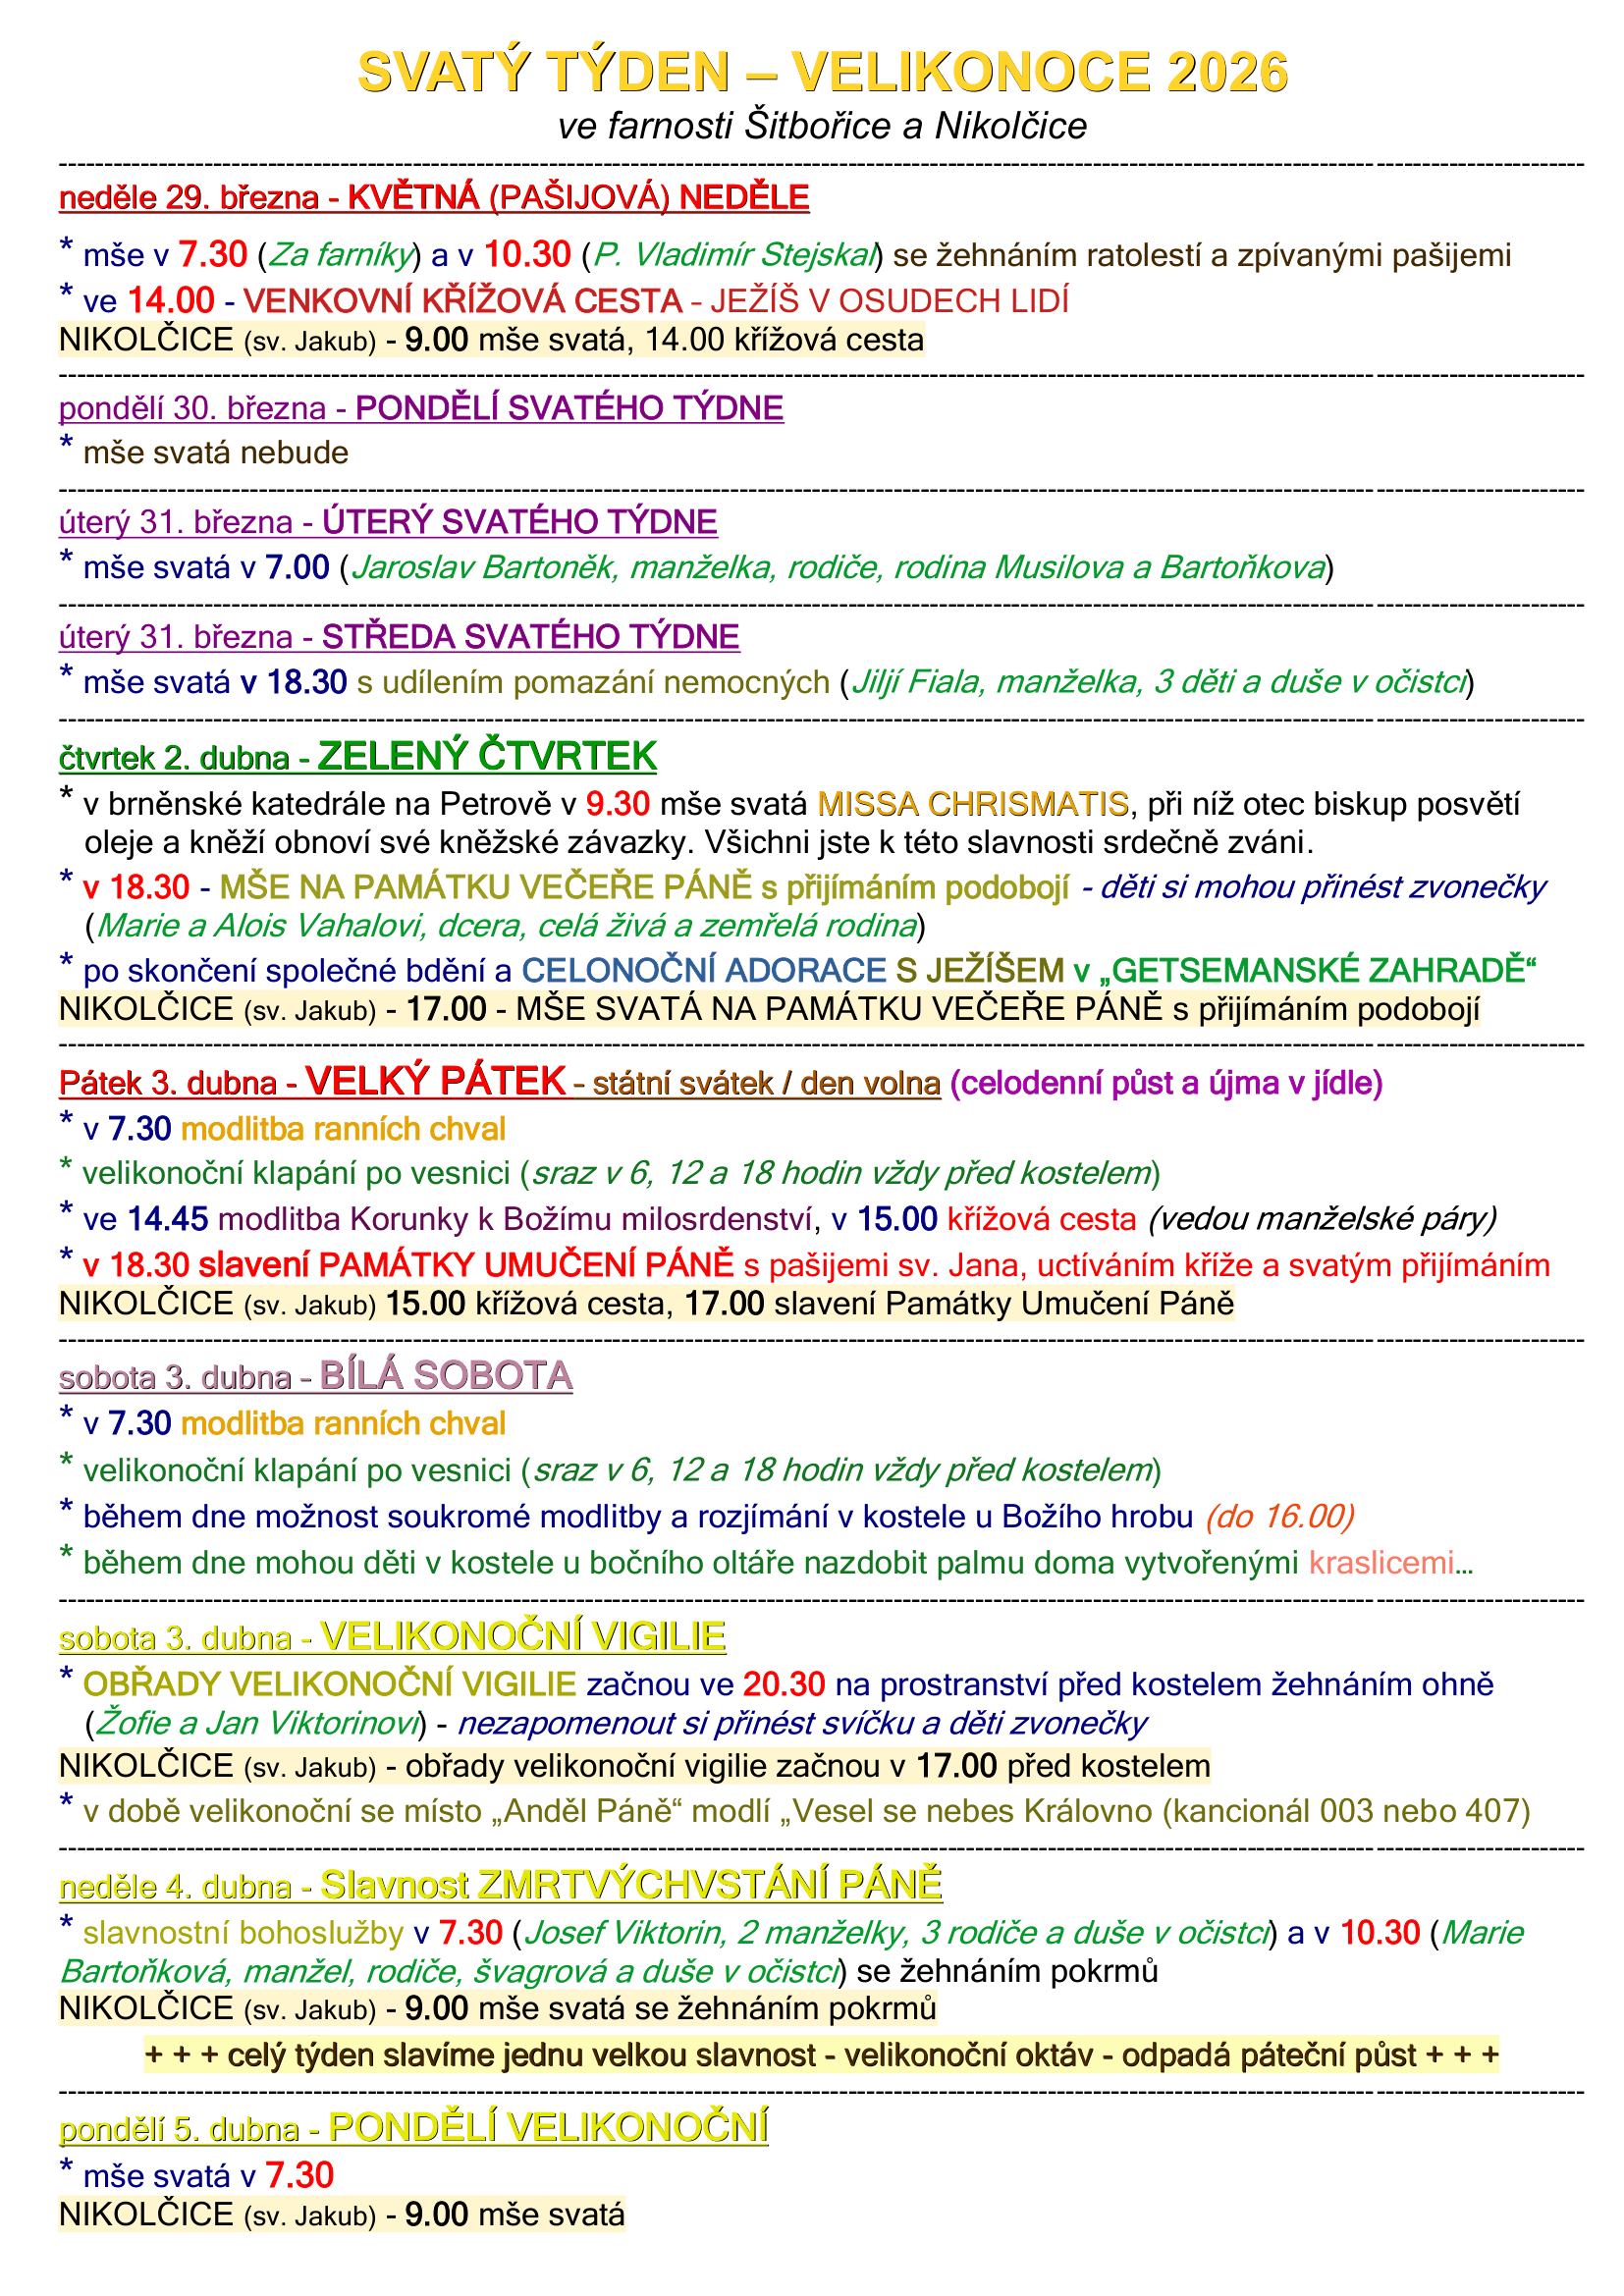 SVATÝ TÝDEN – VELIKONOCE 2026
ve farnosti Šitbořice a Nikolčice
neděle 29. března - KVĚTNÁ (PAŠIJOVÁ) NEDĚLE
* mše v 7.30 (Za farníky) a v 10.30 (P. Vladimír Stejskal) se žehnáním ratolestí a zpívanými pašijemi
* ve 14.00 - VENKOVNÍ KŘÍŽOVÁ CESTA - JEŽÍŠ V OSUDECH LIDÍ
NIKOLČICE (sv. Jakub) - 9.00 mše svatá, 14.00 křížová cesta
pondělí 30. března - PONDĚLÍ SVATÉHO TÝDNE
* mše svatá nebude
úterý 31. března - ÚTERÝ SVATÉHO TÝDNE
* mše svatá v 7.00 (Jaroslav Bartoněk, manželka, rodiče, rodina Musilova a Bartoňkova)
úterý 31. března - STŘEDA SVATÉHO TÝDNE
* mše svatá v 18.30 s udílením pomazání nemocných (Jiljí Fiala, manželka, 3 děti a duše v očistci)
čtvrtek 2. dubna - ZELENÝ ČTVRTEK
* v brněnské katedrále na Petrově v 9.30 mše svatá MISSA CHRISMATIS, při níž otec biskup posvětí
oleje a kněží obnoví své kněžské závazky. Všichni jste k této slavnosti srdečně zváni.
* v 18.30 - MŠE NA PAMÁTKU VEČEŘE PÁNĚ s přijímáním podobojí - děti si mohou přinést zvonečky
(Marie a Alois Vahalovi, dcera, celá živá a zemřelá rodina)
* po skončení společné bdění a CELONOČNÍ ADORACE S JEŽÍŠEM v „GETSEMANSKÉ ZAHRADĚ“
NIKOLČICE (sv. Jakub) - 17.00 - MŠE SVATÁ NA PAMÁTKU VEČEŘE PÁNĚ s přijímáním podobojí
Pátek 3. dubna - VELKÝ PÁTEK - státní svátek / den volna (celodenní půst a újma v jídle)
* v 7.30 modlitba ranních chval
* velikonoční klapání po vesnici (sraz v 6, 12 a 18 hodin vždy před kostelem)
* ve 14.45 modlitba Korunky k Božímu milosrdenství, v 15.00 křížová cesta (vedou manželské páry)
* v 18.30 slavení PAMÁTKY UMUČENÍ PÁNĚ s pašijemi sv. Jana, uctíváním kříže a svatým přijímáním
NIKOLČICE (sv. Jakub) 15.00 křížová cesta, 17.00 slavení Památky Umučení Páně
sobota 3. dubna - BÍLÁ SOBOTA
* v 7.30 modlitba ranních chval
* velikonoční klapání po vesnici (sraz v 6, 12 a 18 hodin vždy před kostelem)
* během dne možnost soukromé modlitby a rozjímání v kostele u Božího hrobu (do 16.00)
* během dne mohou děti v kostele u bočního oltáře nazdobit palmu doma vytvořenými kraslicemi...
sobota 3. dubna - VELIKONOČNÍ VIGILIE
* OBŘADY VELIKONOČNÍ VIGILIE začnou ve 20.30 na prostranství před kostelem žehnáním ohně
(Žofie a Jan Viktorinovi) - nezapomenout si přinést svíčku a děti zvonečky
NIKOLČICE (sv. Jakub) - obřady velikonoční vigilie začnou v 17.00 před kostelem
* v době velikonoční se místo „Anděl Páně“ modlí „Vesel se nebes Královno (kancionál 003 nebo 407)
neděle 4. dubna - Slavnost ZMRTVÝCHVSTÁNÍ PÁNĚ
* slavnostní bohoslužby v 7.30 (Josef Viktorin, 2 manželky, 3 rodiče a duše v očistci) a v 10.30 (Marie
Bartoňková, manžel, rodiče, švagrová a duše v očistci) se žehnáním pokrmů
NIKOLČICE (sv. Jakub) - 9.00 mše svatá se žehnáním pokrmů
+ + + celý týden slavíme jednu velkou slavnost - velikonoční oktáv - odpadá páteční půst + + +
pondělí 5. dubna - PONDĚLÍ VELIKONOČNÍ
* mše svatá v 7.30
NIKOLČICE (sv. Jakub) - 9.00 mše svatá